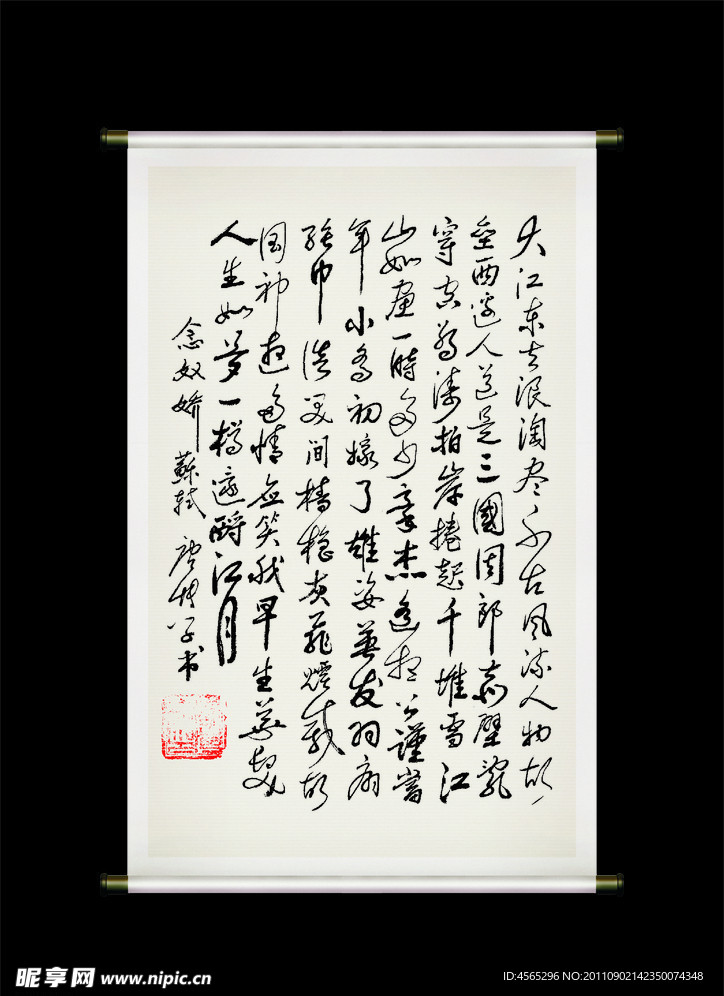 大江东去浪淘尽千古风流人物故
垒西边人道是三國周郎赤壁乱
穿空惊涛拍岸捲起千堆雪江
山如画一时多少豪杰遥想公謹當
年小乔初嫁了雄姿英发羽扇
纶巾谈笑间樯橹灰飞煙灭故
国神遊多情应笑我早生华发
人生如梦一樽還酹江月
念奴娇 蘇轼 书
昵享网 www.nipic.cn
ID:4565296 NO:20110902142350074348